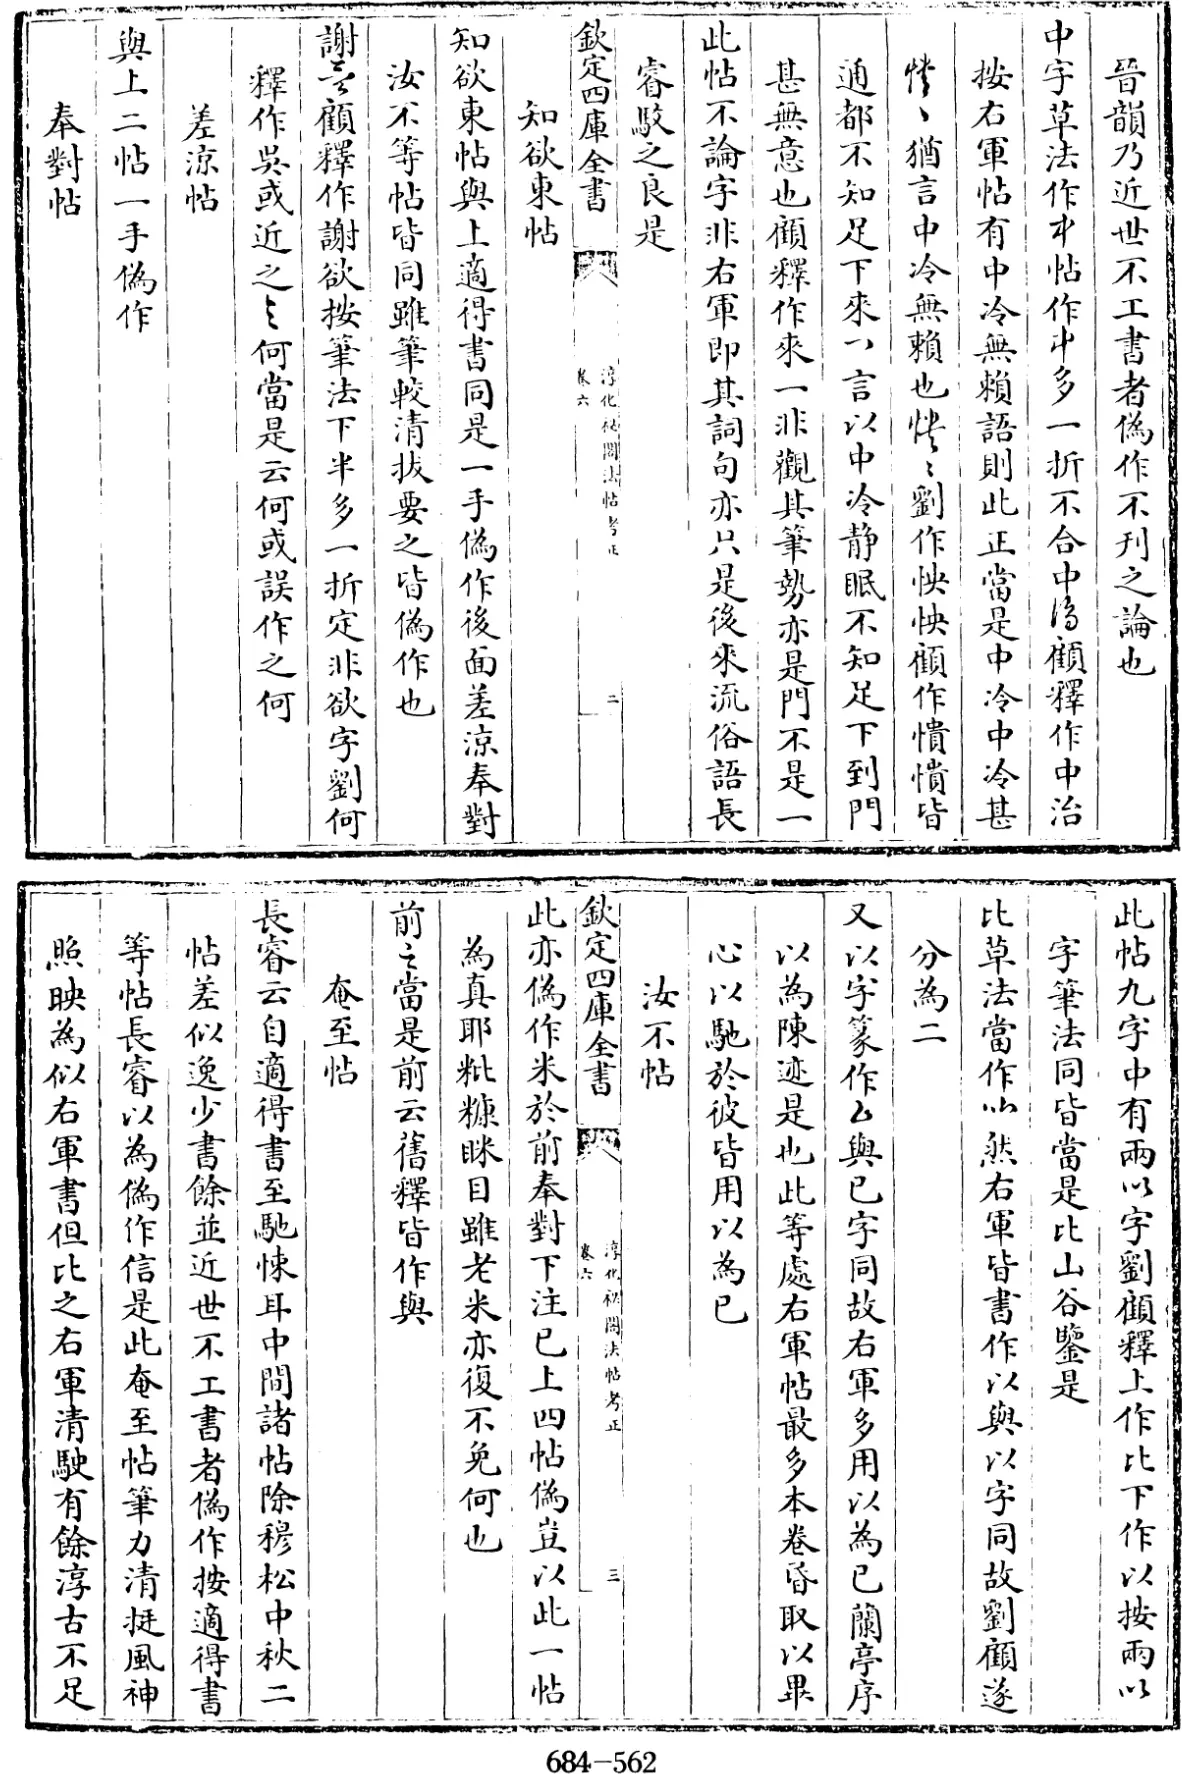 晉韻乃近世不工書者偽作不刊之論也
中字草法作帖作多一折不合中顧釋作中治
按右軍帖有中冷無賴語則此正當是中冷中冷甚
猶言中冷無賴也劉作怏怏顧作憒憒皆
通都不知足下來一言以中冷靜眠不知足下到門
甚無意也顧釋作來一非觀其筆勢亦是門不是一
此帖不論字非右軍即其詞句亦只是後來流俗語長
睿駮之良是
欽定四庫全書
淳化祕閣法帖考正
卷六
二
知欲東帖
知欲東帖與上適得書同是一手偽作後面差涼奉對
汝不等帖皆同雖筆較清拔要之皆偽作也
謝顧釋作謝欲按筆法下半多一折定非欲字劉何
釋作吳或近之何當是云何或誤作之何
差涼帖
與上二帖一手偽作
奉對帖
此帖九字中有兩字劉顧釋上作比下作以按兩以
字筆法同皆當是比山谷鑒是
比草法當作然右軍皆書作以與以字同故劉顧遂
分為二
又以字篆作㠯與已字同故右軍多用以為已蘭亭序
以為陳迹是也此等處右軍帖最多本卷昏取以畢
心以馳於彼皆用以為已
汝不帖
欽定四庫全書
淳化祕閣法帖考正
卷六
三
此亦偽作米於前奉對下注已上四帖偽豈以此一帖
為真耶粃糠眯目雖老米亦復不免何也
前當是前云舊釋皆作與
奄至帖
長睿云自適得書至馳悚耳中間諸帖除穆松中秋二
帖差似逸少書餘並近世不工書者偽作按適得書
等帖長睿以為偽作信是此奄至帖筆力清挺風神
照映為似右軍書但比之右軍清駛有餘淳古不足
684-562